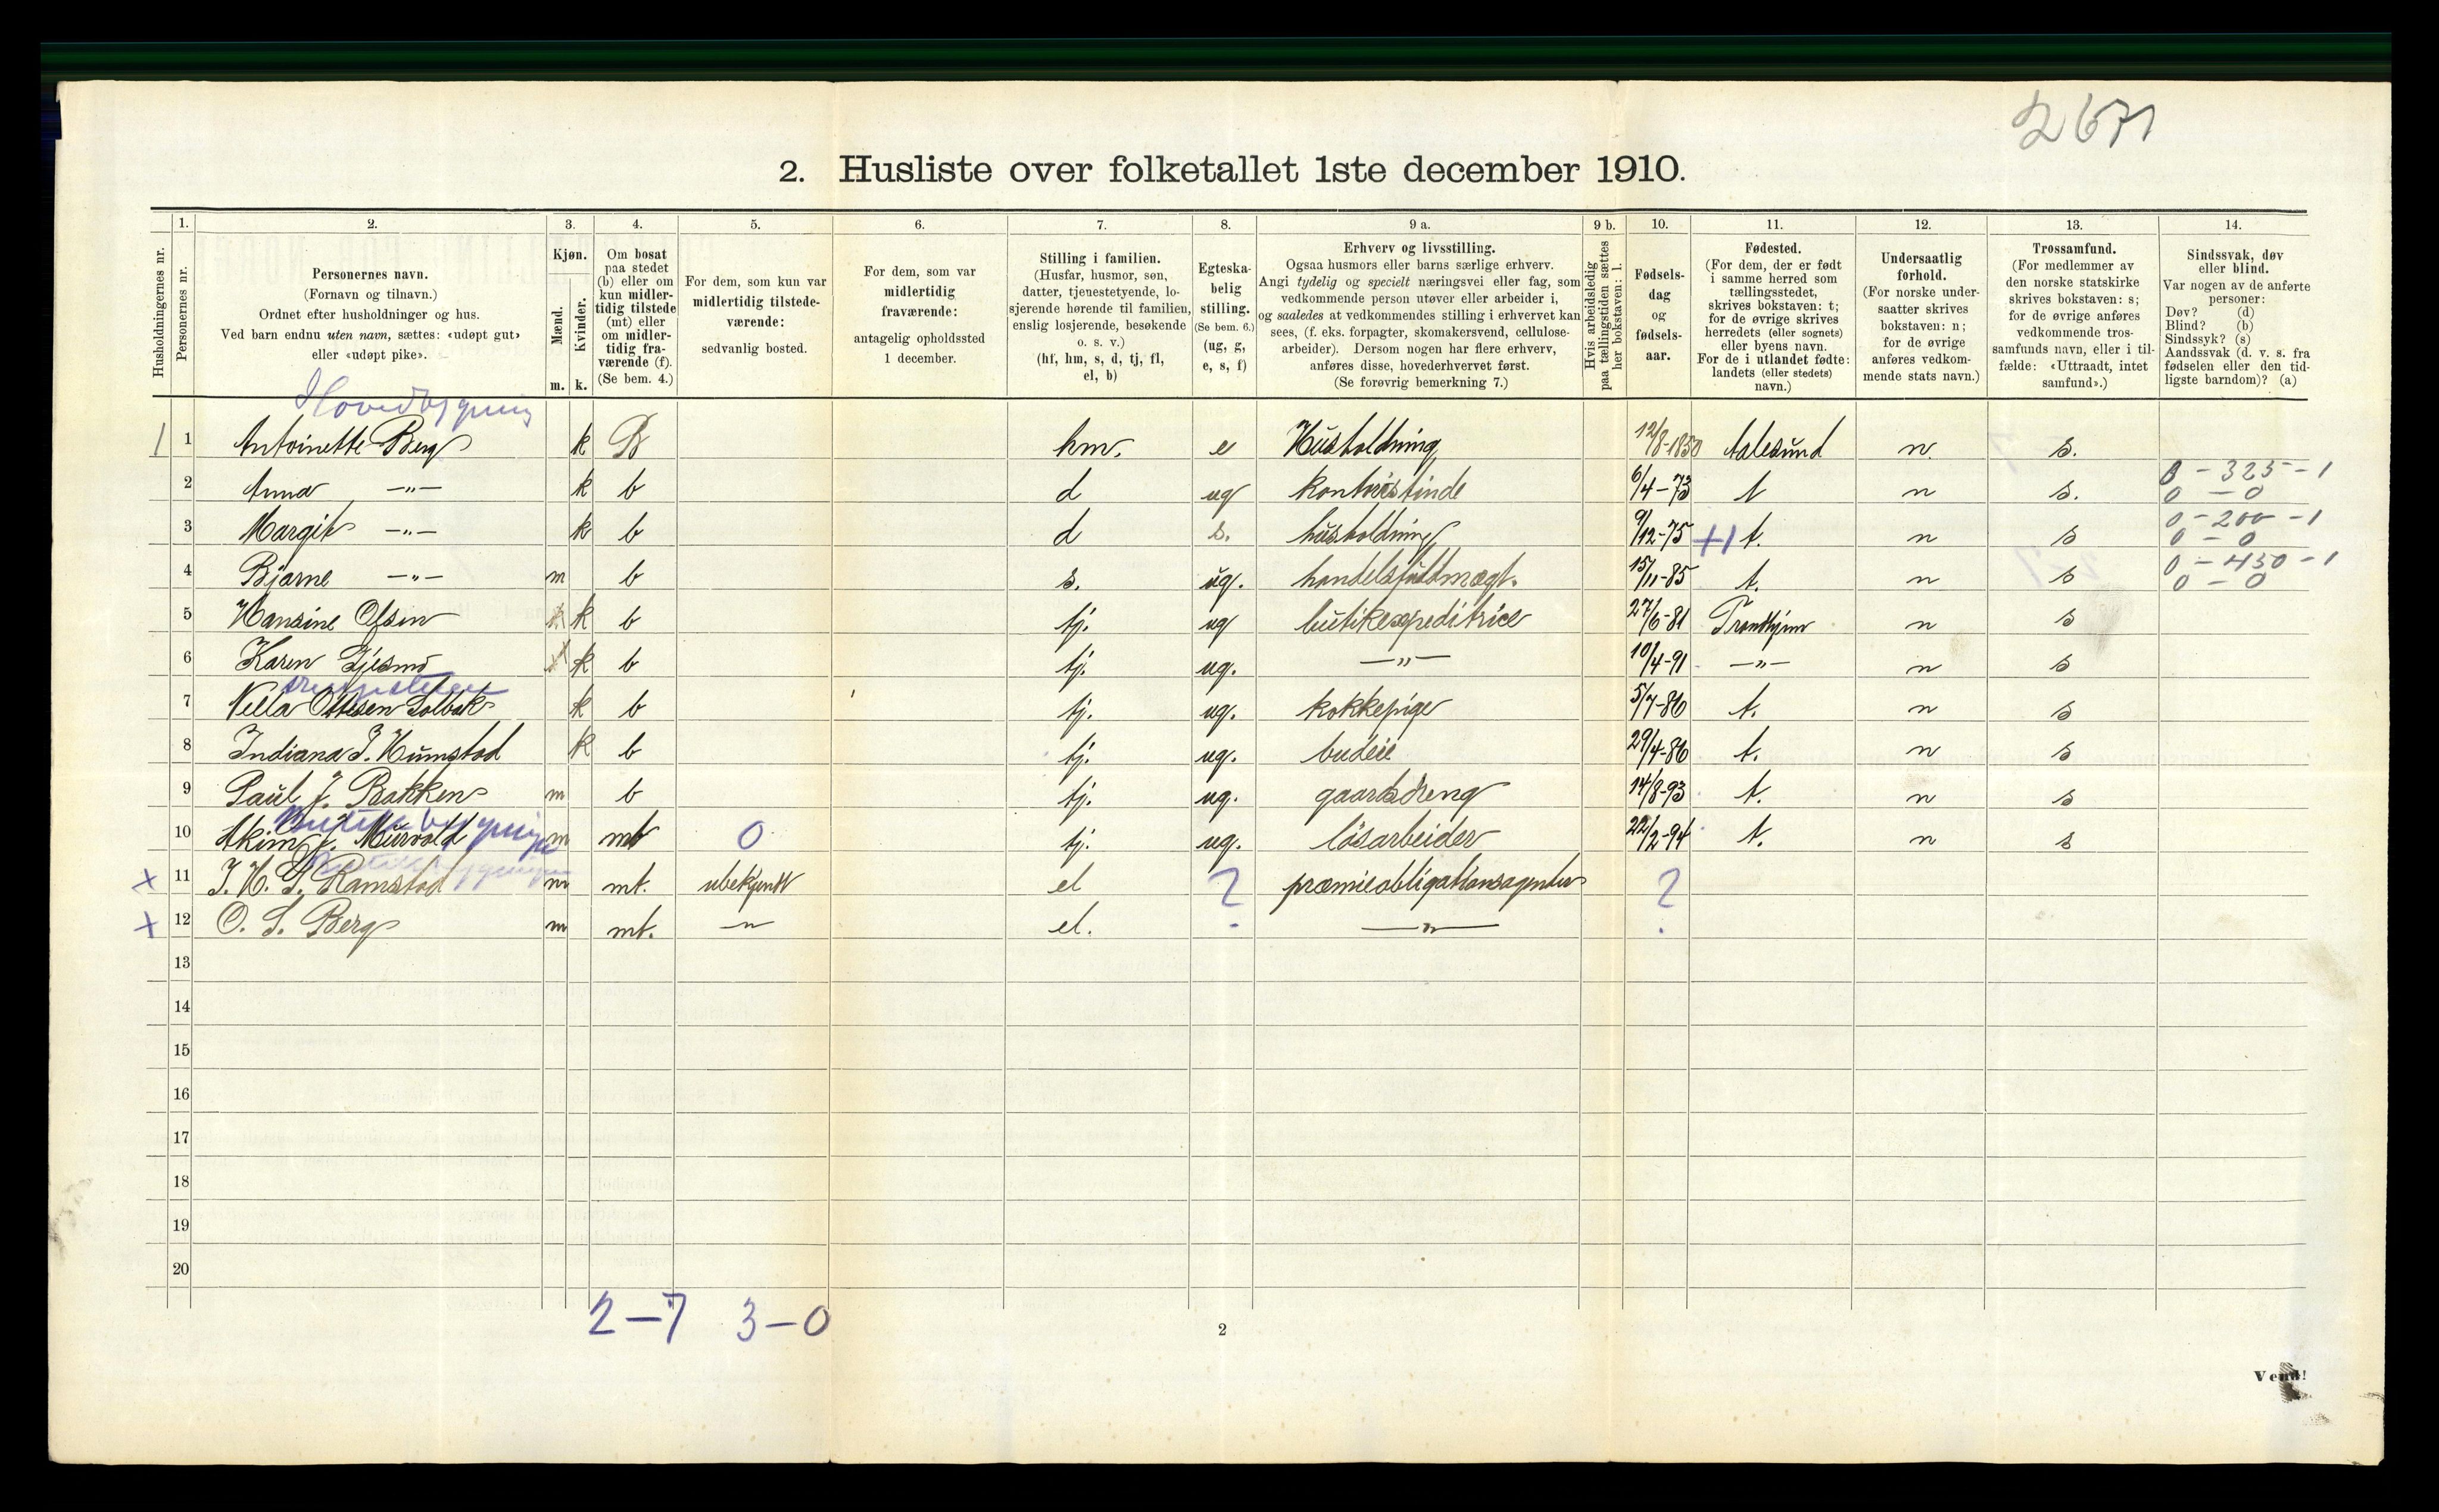 2671
2. Husliste over folketallet 1ste december 1910.
Husholdningernes nr.
1. Personernes nr.
2. Personernes navn. (Fornavn og tilnavn.) Ordnet efter husholdninger og hus. Ved barn endnu uten navn, sættes: «udøpt gut» eller «udøpt pike».
3. Kjøn. Mænd. m. Kvinder. k.
4. Om bosat paa stedet (b) eller om kun midlertidig tilstede (mt) eller om midlertidig fraværende (f). (Se bem. 4.)
5. For dem, som kun var midlertidig tilstedeværende: sedvanlig bosted.
6. For dem, som var midlertidig fraværende: antagelig opholdssted 1 december.
7. Stilling i familien. (Husfar, husmor, søn, datter, tjenestetyende, losjerende hørende til familien, enslig losjerende, besøkende o. s. v.) (hf, hm, s, d, tj, fl, el, b)
8. Egteskabelig stilling. (Se bem. 6.) (ug, g, e, s, f)
9 a. Erhverv og livsstilling. Ogsaa husmors eller barns særlige erhverv. Angi tydelig og specielt næringsvei eller fag, som vedkommende person utøver eller arbeider i, og saaledes at vedkommendes stilling i erhvervet kan sees, (f. eks. forpagter, skomakersvend, cellulosearbeider). Dersom nogen har flere erhverv, anføres disse, hovederhvervet først. (Se forøvrig bemerkning 7.)
9 b. Hvis arbeidsledig paa tællingstiden sættes her bokstaven: l.
10. Fødselsdag og fødselsaar.
11. Fødested. (For dem, der er født i samme herred som tællingsstedet, skrives bokstaven: t; for de øvrige skrives herredets (eller sognets) eller byens navn. For de i utlandet fødte: landets (eller stedets) navn.)
12. Undersaatlig forhold. (For norske undersaatter skrives bokstaven: n; for de øvrige anføres vedkommende stats navn.)
13. Trossamfund. (For medlemmer av den norske statskirke skrives bokstaven: s; for de øvrige anføres vedkommende trossamfunds navn, eller i tilfælde: «Uttraadt, intet samfund».)
14. Sindssvak, døv eller blind. Var nogen av de anførte personer: Døv? (d) Blind? (b) Sindssyk? (s) Aandssvak (d. v. s. fra fødselen eller den tidligste barndom)? (a)
Hovedbygning
1 1 Antoinette Berg k B hm. e Husholdning 12/8-1850 Aalesund n. s.
2 Anna -"- k b d ug kontoristinde 6/4-73 t n s. 0-325-1 0-0
3 Margit -"- k b d s. husholdning 9/12-75 +1 t. n s 0-200-1 0-0
4 Bjarne -"- m b s. ug. handelsfuldmægt. 15/11-85 t. n s 0-450-1 0-0
5 Hansine Olsen k b tj. ug butikexpeditrice 27/6-81 Trondhjem n s
6 Karen k b tj. ug. -"- 10/4-91 -"- n s
7 Nella Ottesen Solbak k b tj. ug. kokkepige 5/7-86 t. n s
8 Indiana J. Humstad k b tj. ug. budeie 29/4-86 t. n s
9 Paul J. Bakken m b tj. ug. gaardsdreng 14/8-93 t. n s
10 Akim J. Murvold m mt 0 tj. ug. løsarbeider 22/2-94 t. n s
+ 11 J. H. S. Ramstad m mt. ubekjendt el ? præmieobligationsagenter ?
+ 12 O. S. Berg m mt. -"- el. -"-
13
14
15
16
17
18
19
20
2-7 3-0
2
Vend!